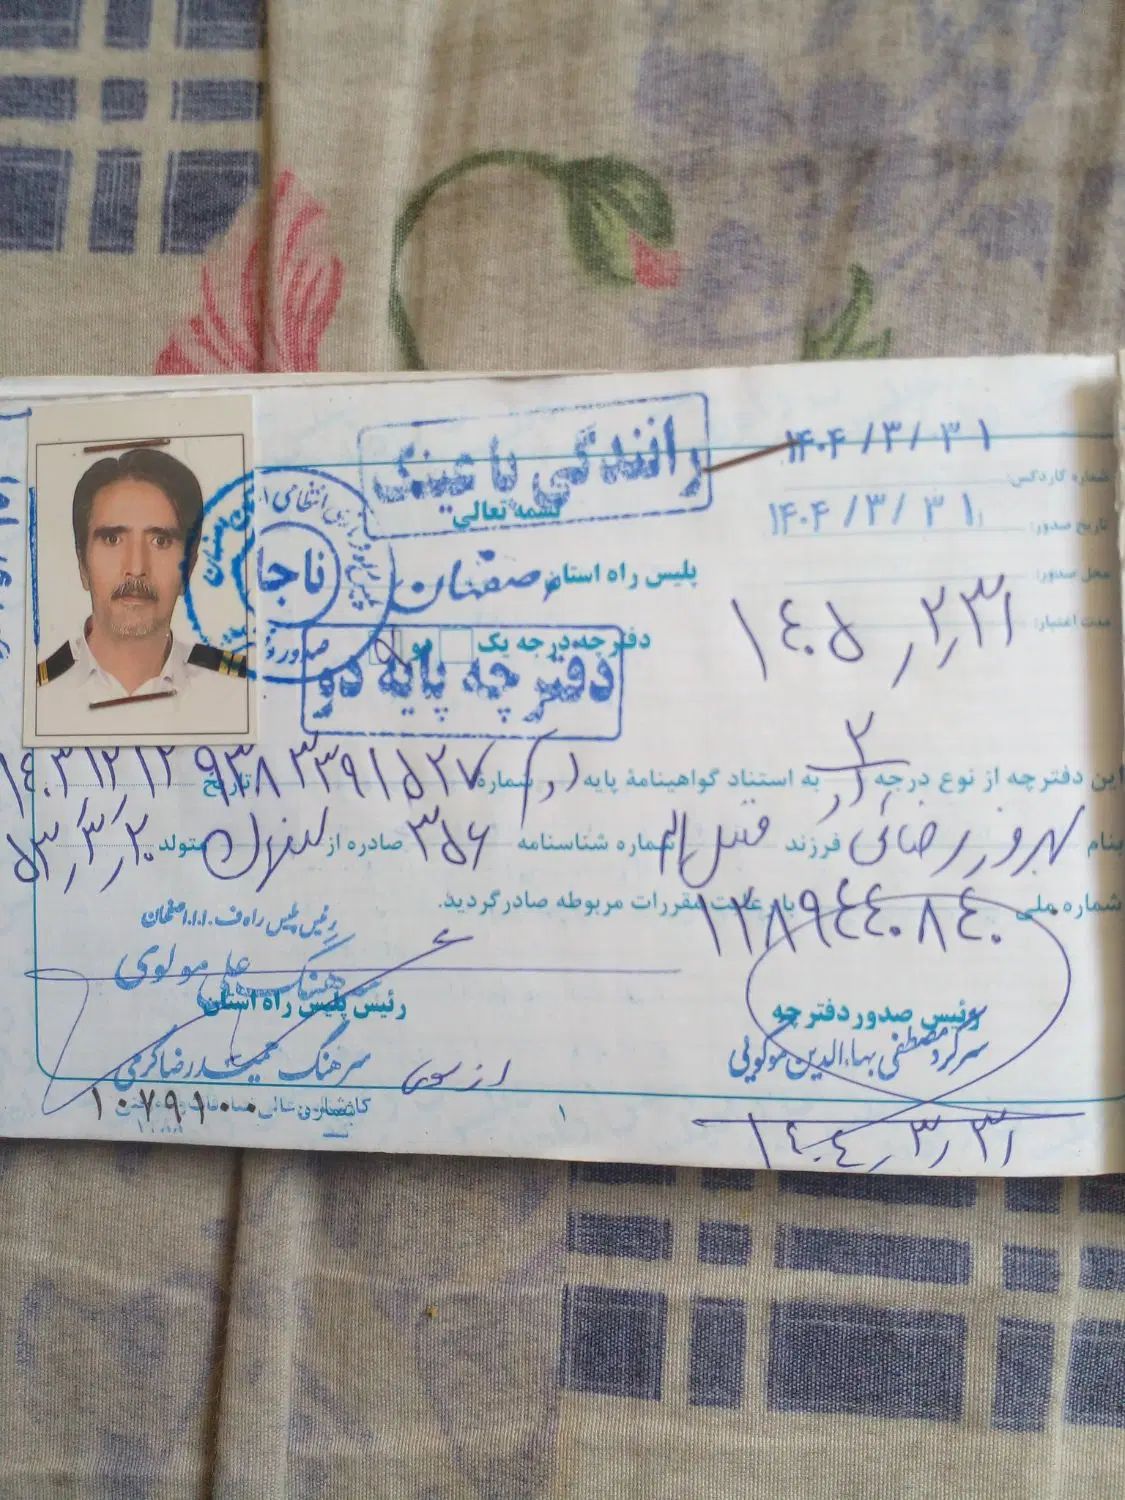 رانندگی با عینک
۱۴۰۴/۳/۳۱
شماره کاردکس:
بسمه تعالی
تاریخ صدور: ۱۴۰۴/۳/۳۱
ناجا
پلیس راه استان اصفهان
محل صدور:
مدت اعتبار: ۱۴۰۵,۲,۳۱
دفترچه درجه یک دو
دفترچه پایه دو
این دفترچه از نوع درجه ۲ به استناد گواهینامهٔ پایه دوم شمارهٔ ۹۳۸۳۳۹۱۵۲۷ تاریخ ۱۴۰۳۱۲۱۲
بنام بهروز رضائی فرزند شماره شناسنامه ۳۵۶ صادره از متولد ۵۳,۳,۲۰
شماره ملی ۱۲۸۹۴۴۰۸۴۰ با رعایت مقررات مربوطه صادر گردید.
رئیس پلیس راه ف.ا.ا. اصفهان
سرهنگ علی مولوی
رئیس پلیس راه استان
رئیس صدور دفترچه
سرگرد مصطفی بهاءالدین موگوئی
سرهنگ حمیدرضا کرمی
از سوی
۱۰۷۹۱۰۰
۱
۱۴۰۴,۳,۳۱